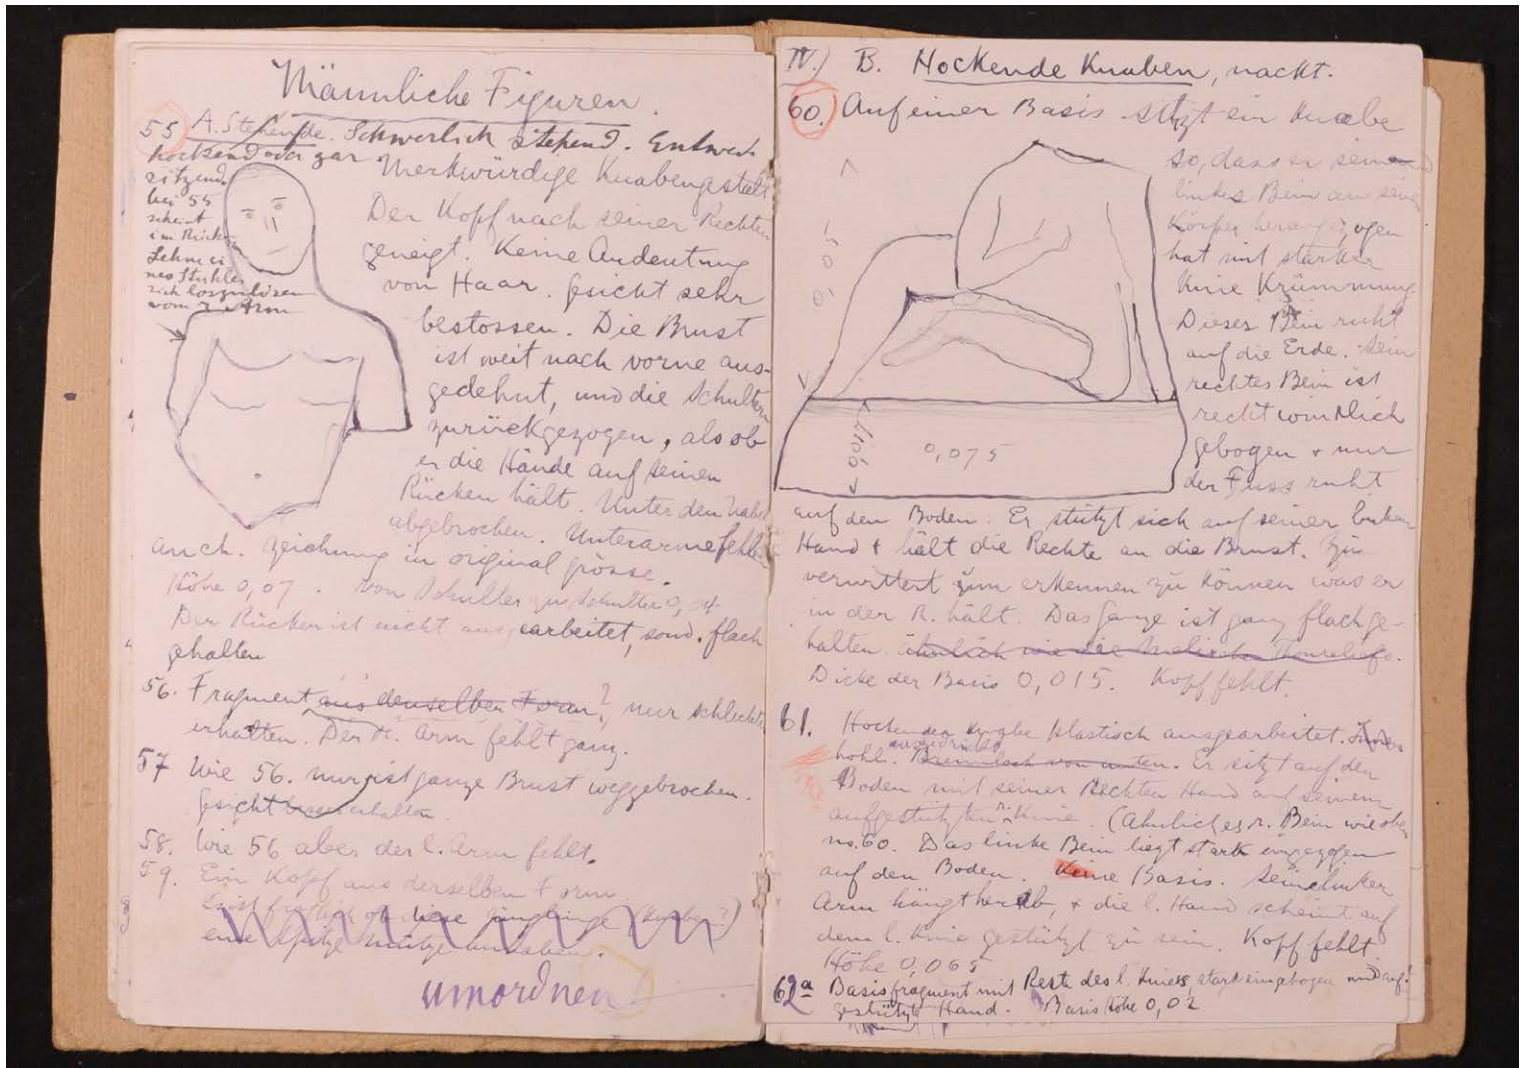 Männliche Figuren.
55 A. Stehende. Schwerlich stehend. Entwed.
hockend oder gar
sitzend.
bei 55
scheint
im Rücken
Lehne ei
nes Stuhles
sich loszulösen
vom r. Arm
Merkwürdige Knabengestalt
Der Kopf nach seiner Rechten
geneigt. Keine Andeutung
von Haar. Gesicht sehr
bestossen. Die Brust
ist weit nach vorne aus-
gedehnt, und die Schultern
zurückgezogen, als ob
er die Hände auf seinen
Rücken hält. Unter den Nabel
abgebrochen. Unterarme fehlen
auch. Zeichnung in original grösse.
Höhe 0,07. Von Schulter zu Schulter 0,04
Der Rücken ist nicht ausgearbeitet, sond. flach
gehalten
56. Fragment aus denselben Form?, nur schlecht
erhalten. Der r. Arm fehlt ganz.
57 Wie 56. nur ist ganze Brust weggebrochen.
Gesicht besser erhalten.
58. Wie 56 aber der l. Arm fehlt.
59. Ein Kopf aus derselben Form
diese Jünglinge (Knaben?)
eine spitze Mütze
umordnen
IV.) B. Hockende Knaben, nackt.
60. Auf einer Basis sitzt ein Knabe
so, dass er seinen
linkes Bein an seinen
Körper herangezogen
hat mit starker
Knie Krümmung.
Dieses Bein ruht
auf die Erde. Sein
rechtes Bein ist
recht winklich
gebogen + nur
der Fuss ruht
0,05
0,017
0,075
auf den Boden. Er stützt sich auf seiner linken
Hand + hält die Rechte an die Brust. Zu
verwittert zum erkennen zu können was er
in der R. hält. Das ganze ist ganz flach ge-
halten ähnlich wie die Melischen Thonreliefs.
Dicke der Basis 0,015. Kopf fehlt.
61. Hockender Knabe plastisch ausgearbeitet. Innen
hohl. Brennloch von unten. Er sitzt auf den
Boden mit seiner Rechten Hand auf seinem
aufgestützten r. Knie. (Ähnliches r. Bein wie oben
no. 60. Das linke Bein liegt stark eingezogen
auf den Boden. Keine Basis. Sein linker
Arm hängt herab, + die l. Hand scheint auf
dem l. Knie gestützt zu sein. Kopf fehlt
Höhe 0,065
62a Basisfragment mit Reste des l. Knies, stark eingebogen und auf-
gestützte Hand. Basis Höhe 0,02